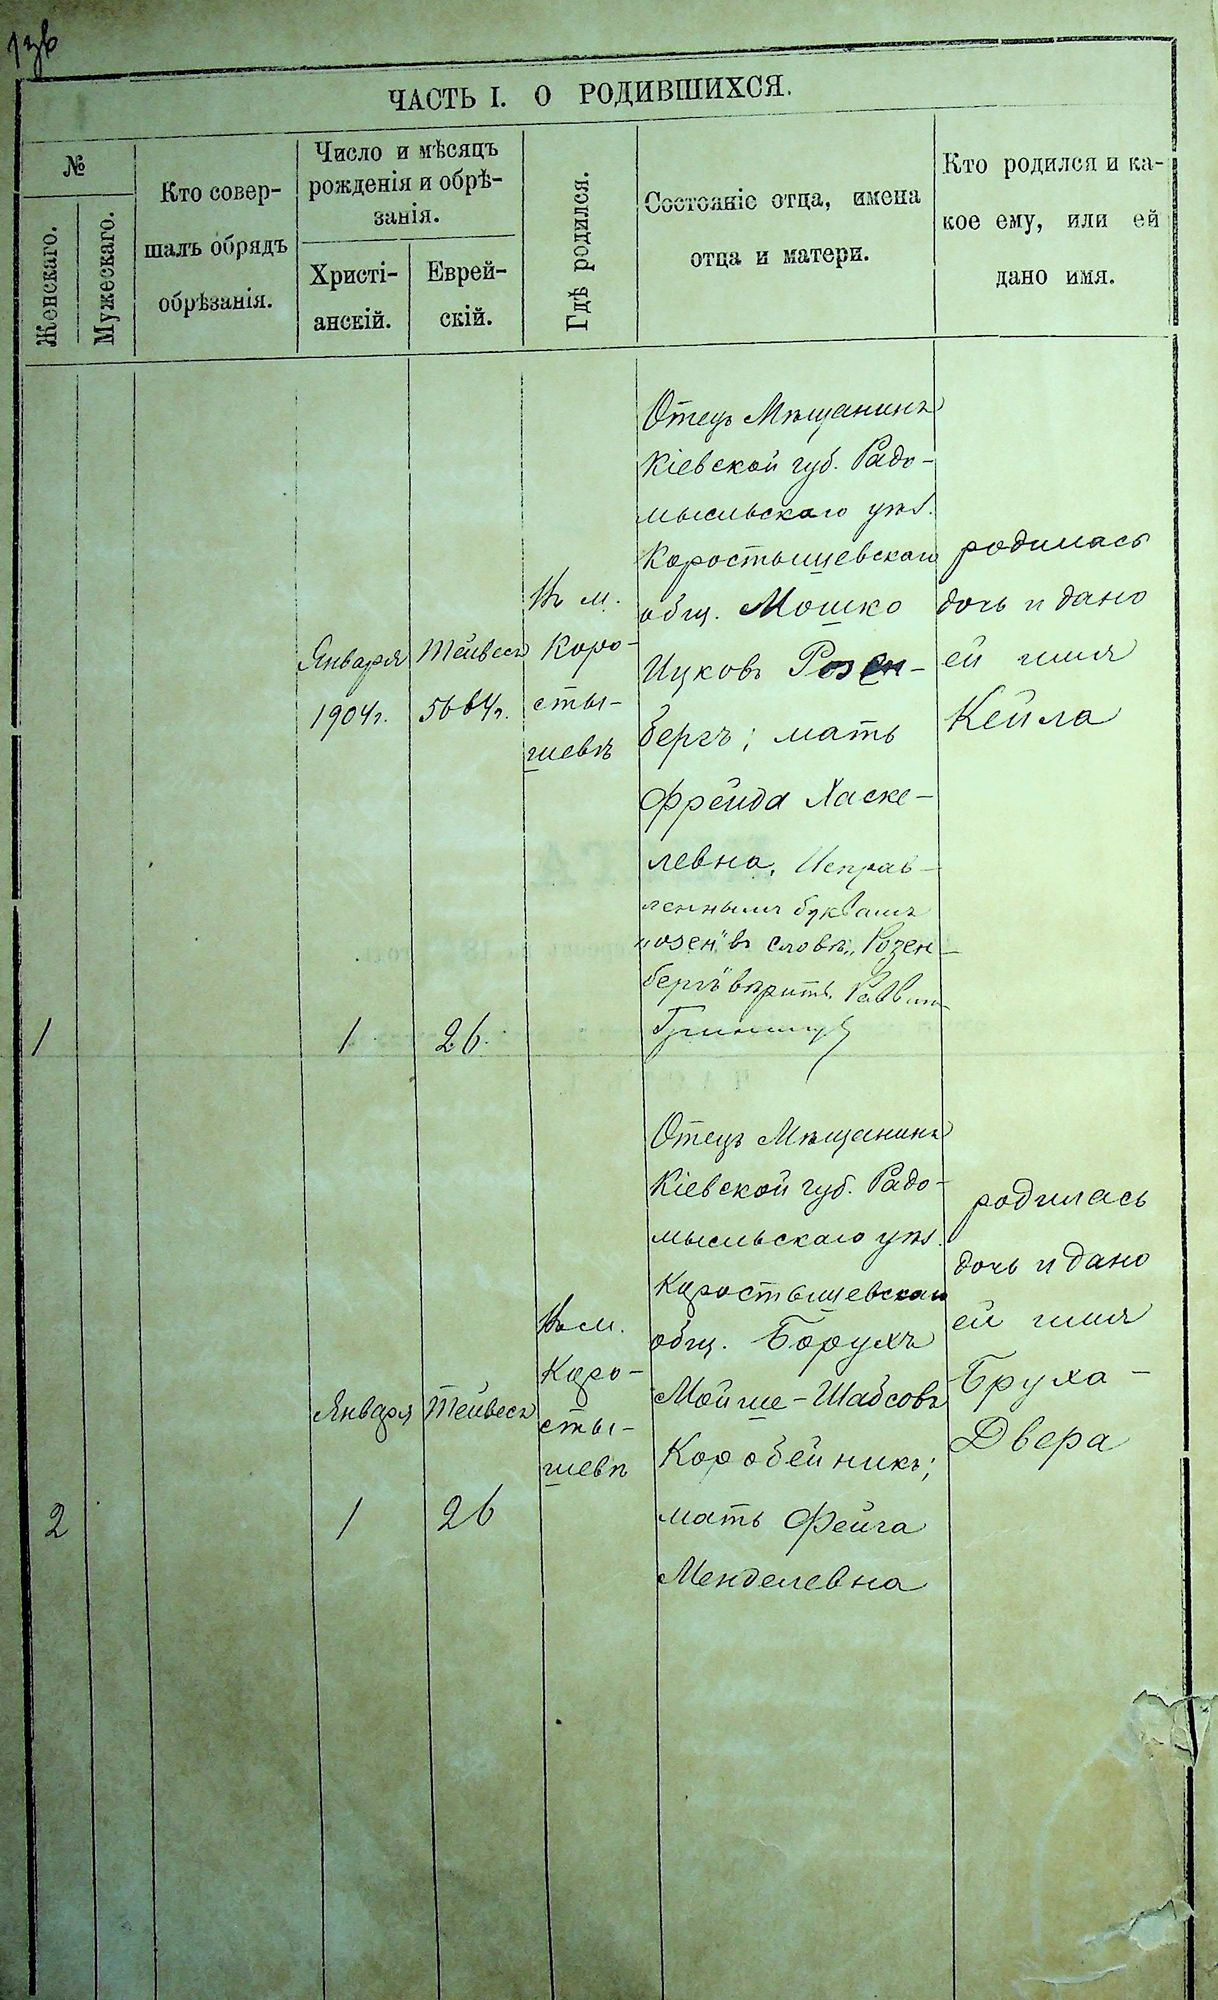 ЧАСТЬ I. О РОДИВШИХСЯ.
№
Женскаго.
Мужескаго.
Кто совер-
шалъ обрядъ
обрѣзанія.
Число и мѣсяцъ
рожденія и обрѣ-
занія.
Христі-
анскій.
Еврей-
скій.
Гдѣ родился.
Состояніе отца, имена
отца и матери.
Кто родился и ка-
кое ему, или ей
дано имя.
1
Января
1904г.
1
Тейвесъ
5664г.
26.
Въ м.
Коро-
сты-
шевѣ
Отецъ Мѣщанинъ
Кіевской губ. Радо-
мысльскаго уѣз.
Коростышевскаго
общ. Мошко
Ицковъ Розен-
бергъ; мать
Фрейда Хаске-
левна. Исправ-
леннымъ буквамъ
„озен" въ словѣ „Розен-
бергъ" вѣрить. Раввинъ
родилась
дочь и дано
ей имя
Кейла
2
Января
1
Тейвесъ
26
Въ м.
Коро-
сты-
шевѣ
Отецъ Мѣщанинъ
Кіевской губ. Радо-
мысльскаго уѣз.
Коростышевскаго
общ. Борухъ
Мойше-Шабсовъ
Коробейникъ;
мать Фейга
Менделевна
родилась
дочь и дано
ей имя
Бруха-
Двера